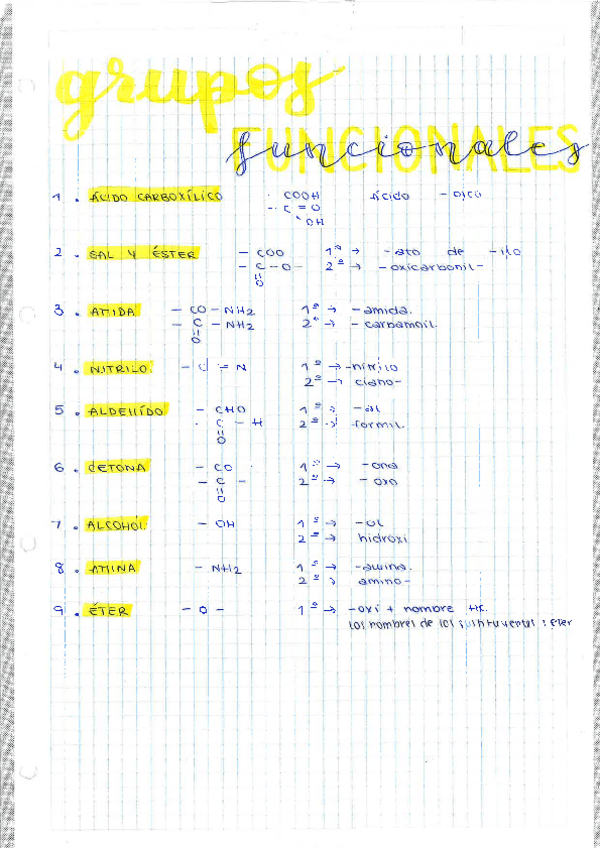 grupos
FUNCIONALES
funcionales
1. ÁCIDO CARBOXÍLICO COOH ácido -oico
- C = O
OH
2. SAL Y ÉSTER - COO 1º → -ato de -ilo
- C - O - 2º → -oxicarbonil-
O
3. AMIDA - CO - NH2 1º → -amida.
- C - NH2 2º → - carbamoil.
O
4. NITRILO. - C ≡ N 1º → -nitrilo
2º → ciano-
5. ALDEHÍDO - CHO 1º → -al
C - H 2º → formil.
O
6. CETONA - CO 1º → -ona
- C - 2º → - oxo
O
7. ALCOHOL. - OH 1º → -ol
2º → hidroxi
8. AMINA - NH2 1º → -amina.
2º → amino-
9. ÉTER - O - 1º → -oxi + nombre HC.
los nombres de los sustituyentes : éter